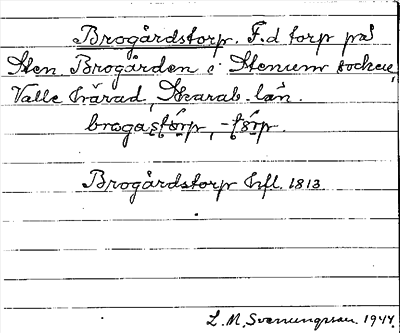 Brogårdstorp. F.d torp på
Hem. Brogården i Stenum socken,
Valle härad, Skarab. län.
brogastórp, -tórp.
Brogårdstorp Hfl. 1813
L. M. Svenungsson. 1944.